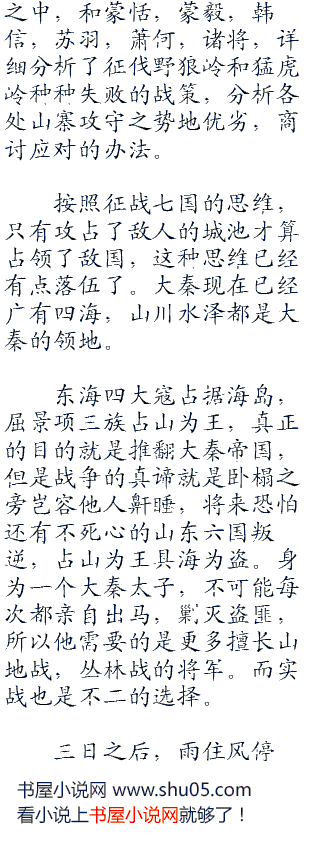 之中，和蒙恬，蒙毅，韩
信，苏羽，萧何，诸将，详
细分析了征伐野狼岭和猛虎
岭种种失败的战策，分析各
处山寨攻守之势地优劣，商
讨应对的办法。
按照征战七国的思维，
只有攻占了敌人的城池才算
占领了敌国，这种思维已经
有点落伍了。大秦现在已经
广有四海，山川水泽都是大
秦的领地。
东海四大寇占据海岛，
屈景项三族占山为王，真正
的目的就是推翻大秦帝国，
但是战争的真谛就是卧榻之
旁岂容他人鼾睡，将来恐怕
还有不死心的山东六国叛
逆，占山为王具海为盗。身
为一个大秦太子，不可能每
次都亲自出马，剿灭盗匪，
所以他需要的是更多擅长山
地战，丛林战的将军。而实
战也是不二的选择。
三日之后，雨住风停
书屋小说网 www.shu05.com
看小说上书屋小说网就够了！